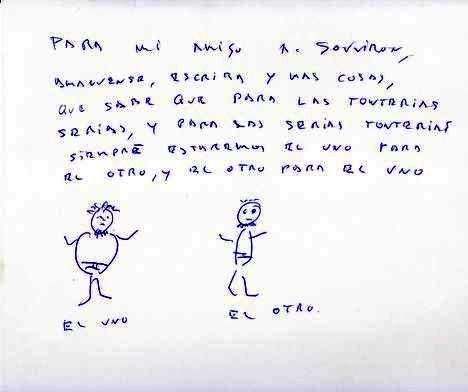 PARA MI AMIGO A. SOUVIRON,
AMANUENSE, ESCRIBA Y MAS COSAS,
QUE SABE QUE PARA LAS TONTERIAS
SERIAS, Y PARA LAS SERIAS TONTERIAS
SIEMPRE ESTAREMOS EL UNO PARA
EL OTRO, Y EL OTRO PARA EL UNO
EL UNO
EL OTRO.